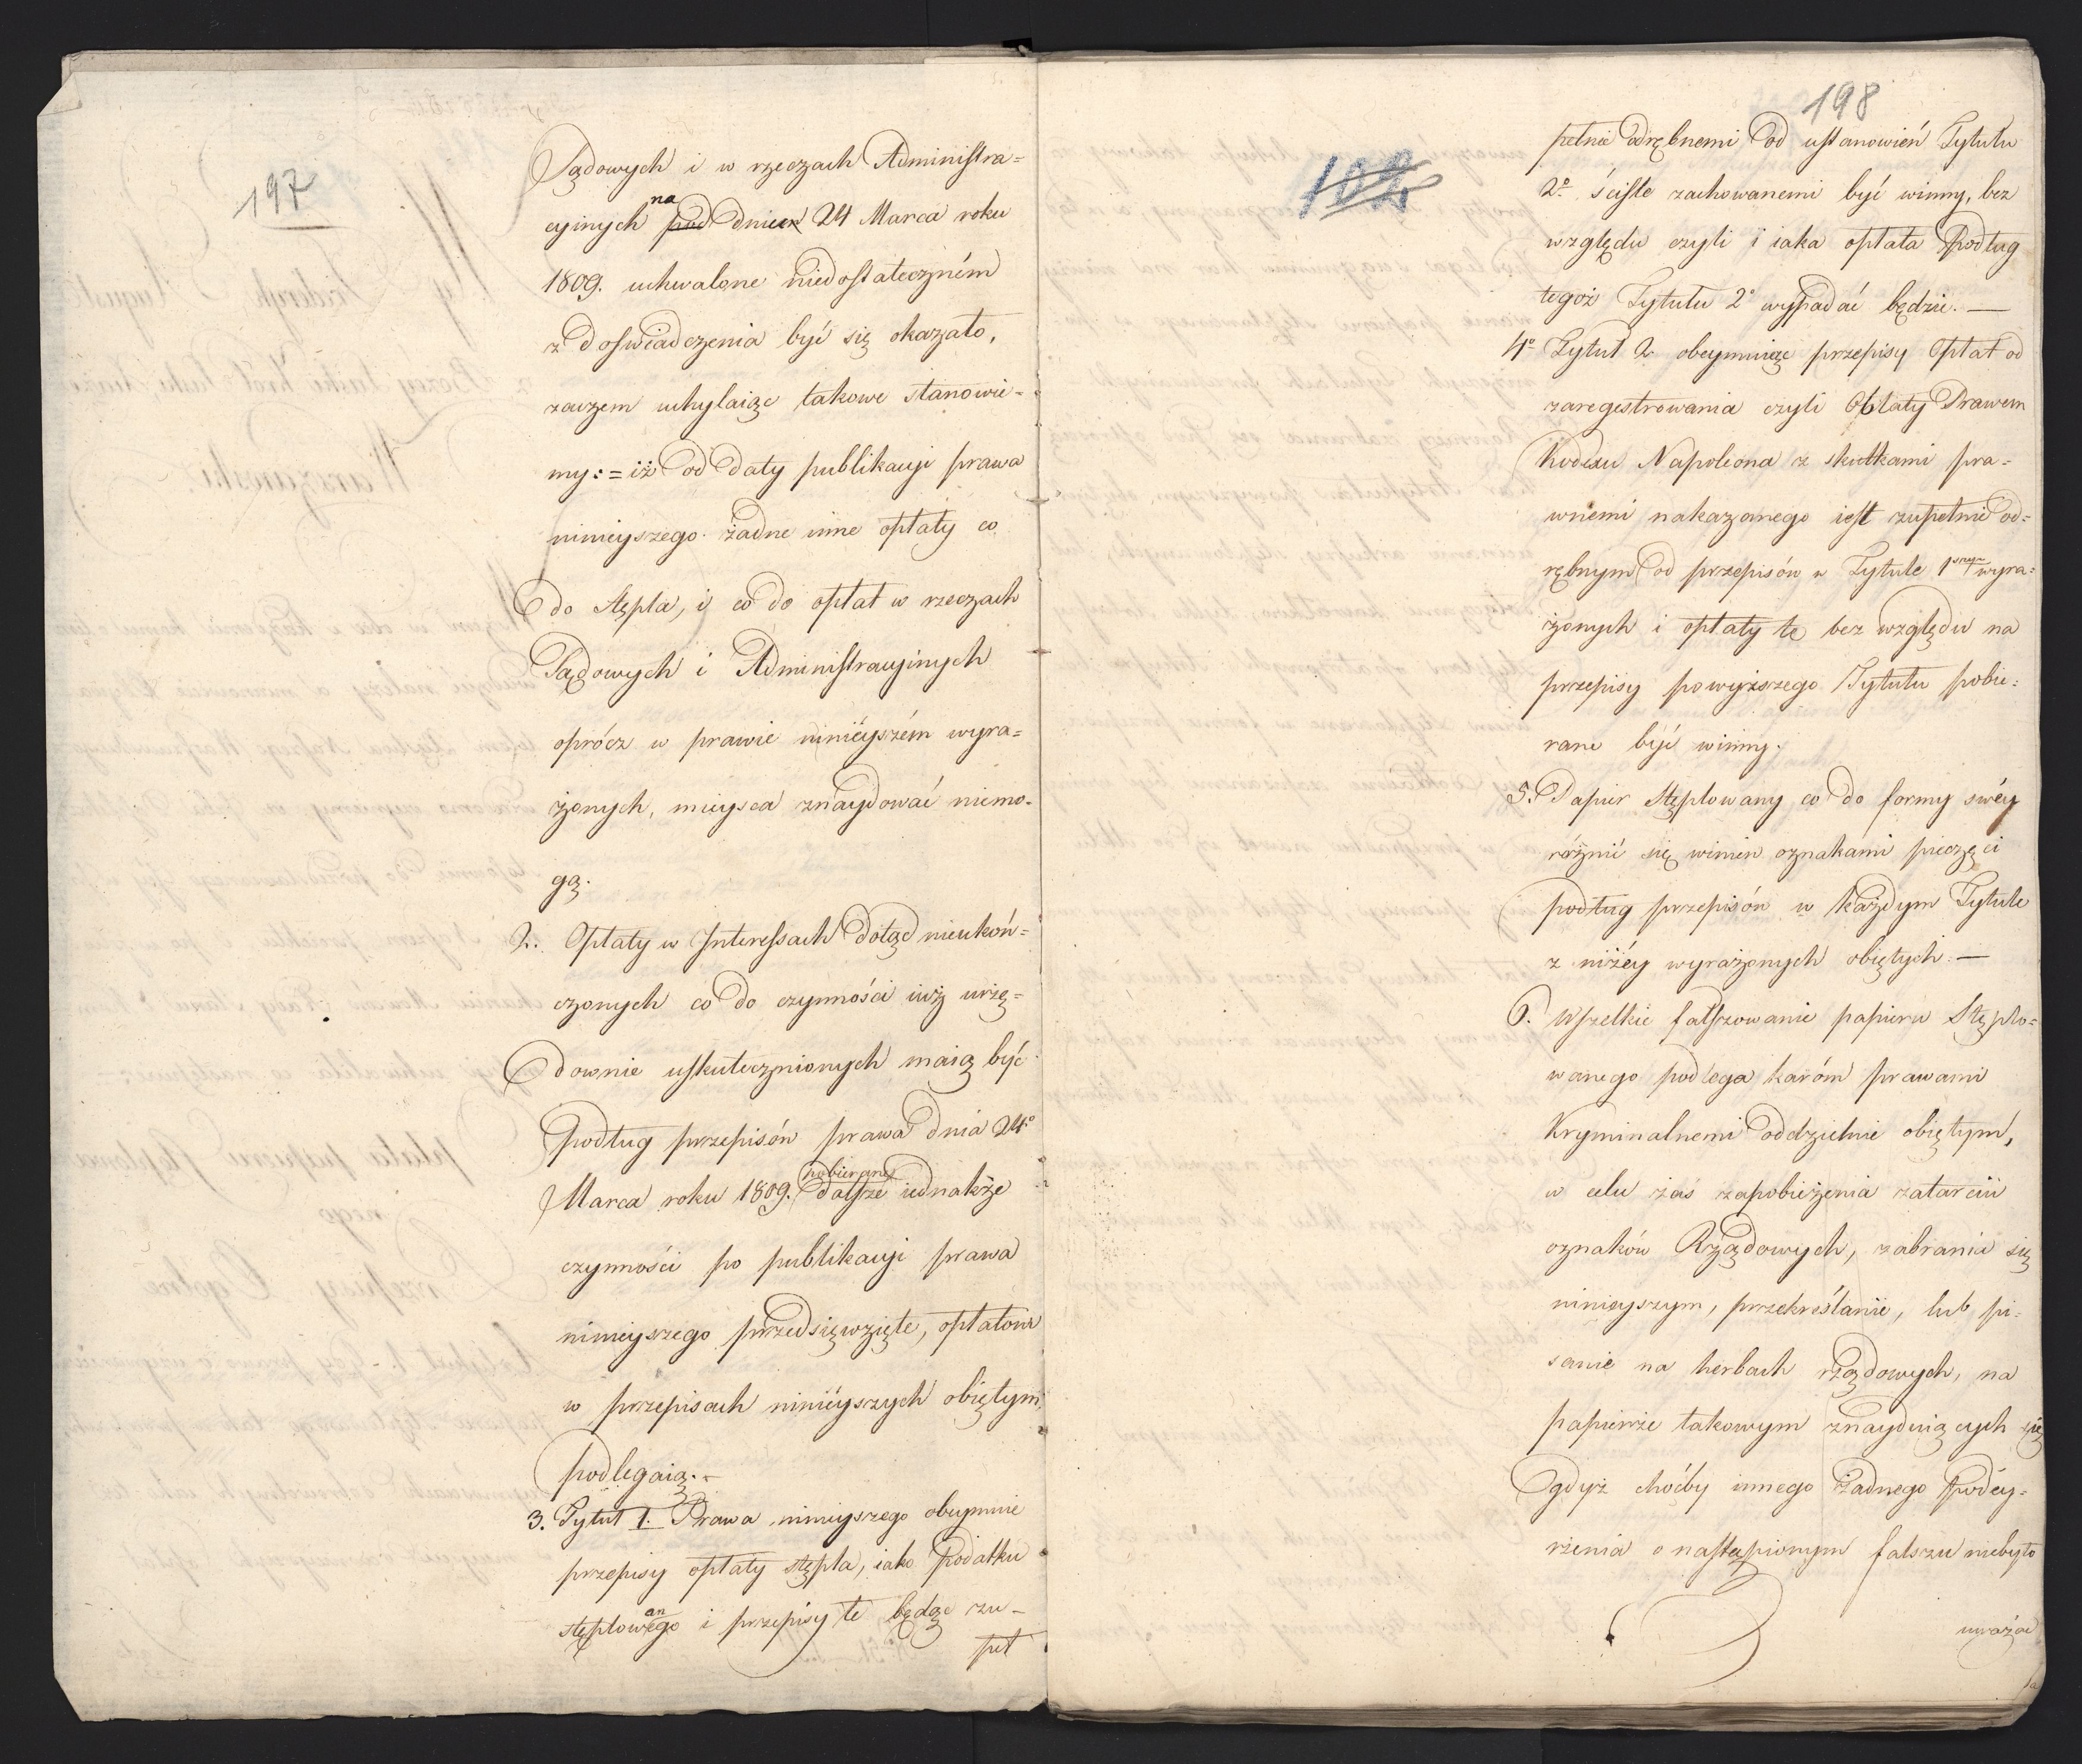 197
Sądowych i w rzeczach Administra=
cyinych na pod dniem 24 Marca roku
1809. uchwalone niedostateczném
z doświadczenia być się okazało,
zaczem uchylaiąc takowe stanowie=
my: = iż od daty publikacyi prawa
ninieyszego żadne inne opłaty co
do stępla, i co do opłat w rzeczach
Sądowych i Administracyinych
oprócz w prawie ninieyszém wyra=
żonych, mieysca znaydować niemo=
gą.
2. Opłaty w Interessach dotąd nieukoń=
czonych co do czynności iuż urzę=
downie uskutecznionych maią być
podług przepisów prawa dnia 24º
Marca roku 1809. pobierane dalsze iednakże
czynności po publikacyi prawa
ninieyszego przedsięwzięte, opłatom
w przepisach ninieyszych obiętym,
podlegaią.
3. Tytuł 1. Prawa ninieyszego obeymuie
przepisy opłaty stępla, iako podatku
stęplowanego i przepisy te będąc zu=
peł
198
102
pełnie odrębnemi od ustanowień Tytułu
2º ściśle zachowanemi być winny, bez
względu czyli i iaka opłata podług
tegoż Tytułu 2º wypadać będzie. —
4º Tytuł 2. obeymuiąc przepisy opłat od
zaregestrowania czyli Oblaty Prawem
Kodexu Napoleona z skutkami pra=
wnemi nakazanego iest zupełnie od=
rębnym od przepisów w Tytule 1szym wyra=
żonych i opłaty te bez względu na
przepisy powyższego Tytułu pobie=
rane być winny.
5. Papier Stęplowany co do formy swéy
różnić się winien oznakami pieczęci
podług przepisów w każdym Tytule
z niżéy wyrażonych obiętych. —
6. Wszelkie fałszowanie papieru Stęplo=
wanego podlega karóm prawami
Kryminalnemi oddzielnie obiętym,
w celu zaś zapobieżenia zatarciu
oznaków Rządowych, zabrania się
ninieyszym, przekreślanie, lub pi=
sanie na herbach rządowych, na
papierze takowym znayduiących się
gdyż choćby innego żadnego podéy=
rzenia o nastąpionym fałszu niebyło
uważać